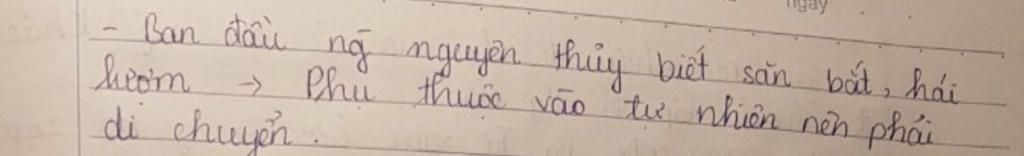 ngày
- Ban đầu ng̃ nguyên thủy biết săn bắt, hái
lượm → Phụ thuộc vào tự nhiên nên phải
di chuyển.